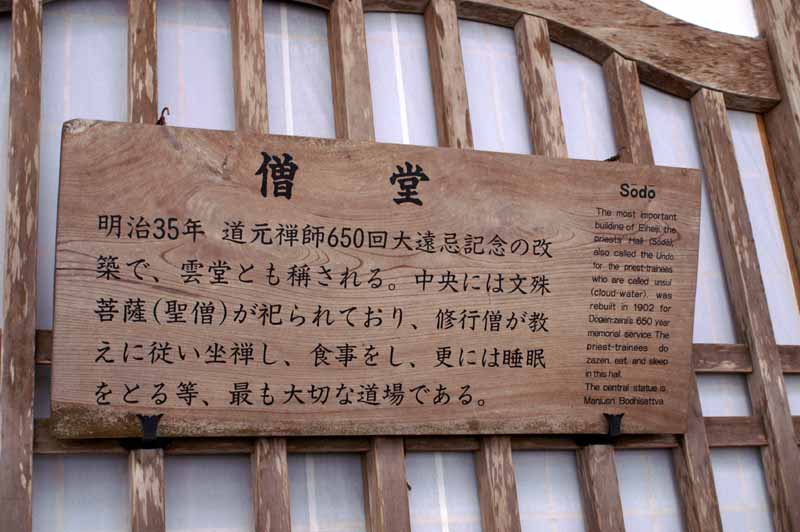 僧堂
明治35年 道元禅師650回大遠忌記念の改
築で、雲堂とも稱される。中央には文殊
菩薩(聖僧)が祀られており、修行僧が教
えに従い坐禅し、食事をし、更には睡眠
をとる等、最も大切な道場である。
Sōdō
The most important
building of Eiheiji, the
priests' Hall (Sōdō),
also called the Undo
for the priest-trainees
who are called unsui
(cloud-water), was
rebuilt in 1902 for
Dōgen-zenji's 650 year
memorial service. The
priest-trainees do
zazen, eat and sleep
in this hall.
The central statue is
Manjusri Bodhisattva.